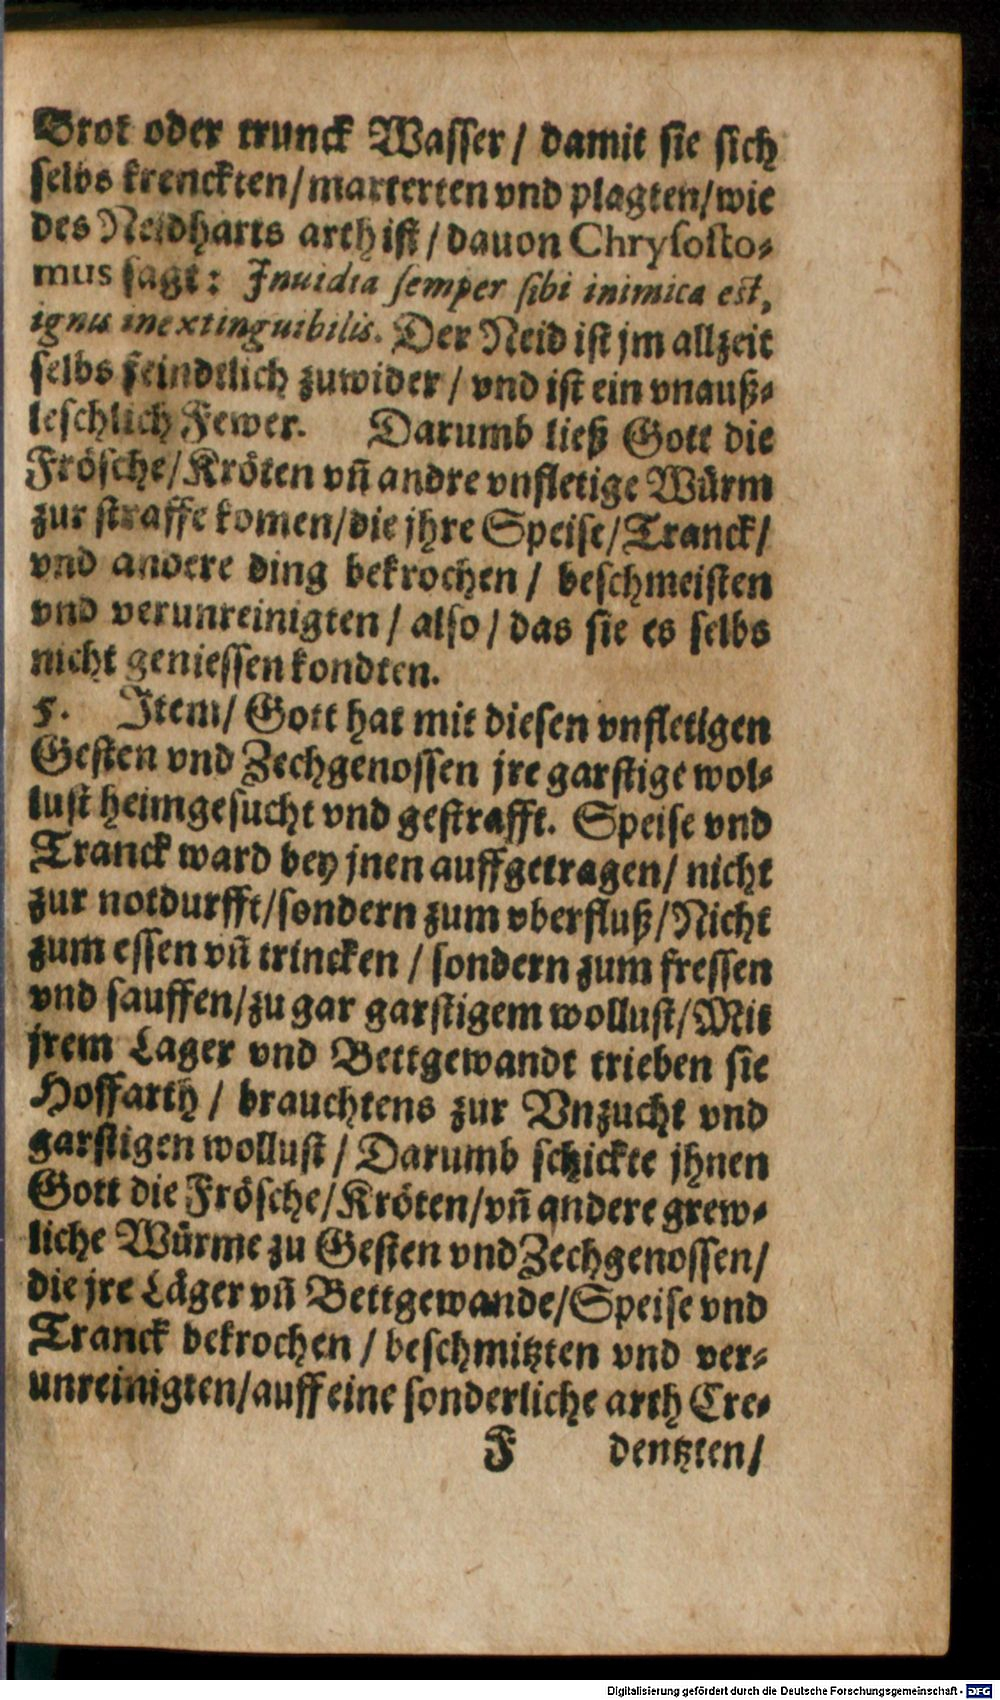 Brot oder trunck Wasser / damit sie sich
selbs krenckten/marterten vnd plagten/wie
des Neidharts arth ist / dauon Chrysosto-
mus sagt: Inuidia semper sibi inimica est,
ignis inextinguibilis. Der Neid ist jm allzeit
selbs feindtlich zuwider / vnd ist ein vnauß-
leschlich Fewer. Darumb ließ Gott die
Frösche/Kröten vn̄ andre vnfletige Würm
zur straffe komen/die jhre Speise/Tranck/
vnd andere ding bekrochen / beschmeisten
vnd verunreinigten / also / das sie es selbs
nicht geniessen kondten.
5. Item/ Gott hat mit diesen vnfletigen
Gesten vnd Zechgenossen jre garstige wol-
lust heimgesucht vnd gestrafft. Speise vnd
Tranck ward bey jnen auffgetragen/ nicht
zur notdurfft/sondern zum vberfluß/Nicht
zum essen vn̄ trincken / sondern zum fressen
vnd sauffen/zu gar garstigem wollust/Mit
jrem Lager vnd Bettgewandt trieben sie
Hoffarth / brauchtens zur Vnzucht vnd
garstigen wollust / Darumb schickte jhnen
Gott die Frösche/Kröten/vn̄ andere grew-
liche Würme zu Gesten vnd Zechgenossen/
die jre Läger vn̄ Bettgewande/Speise vnd
Tranck bekrochen / beschmitzten vnd ver-
unreinigten/auff eine sonderliche arth Cre-
F dentzten/
Digitalisierung gefördert durch die Deutsche Forschungsgemeinschaft - DFG